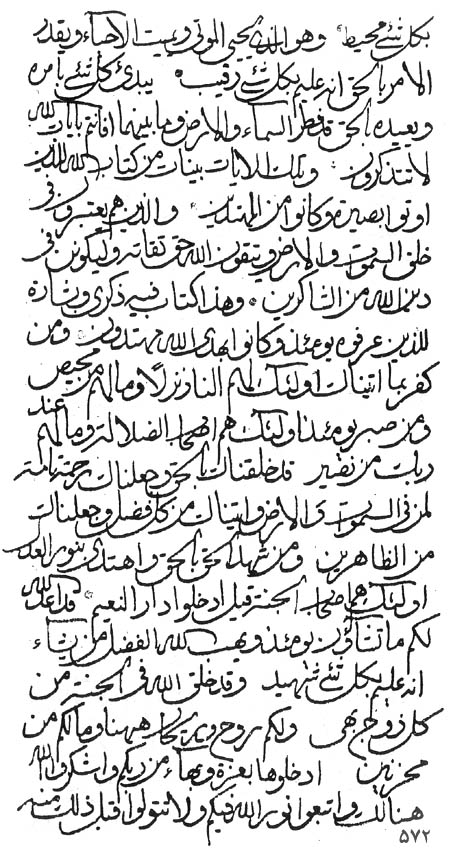 بكل شئ محيط وهو الذی يحيی الموتی ويميت الاحياء ويقدر
الامر بالحق انه عليم بكل شئ رقيب يبدئ كل شئ بامره
ويعيده الحق قد فطر السماء والارض وما بينهما افانتم بايات الله
لا تتذكرون وتلك الايات بينات من كتاب الله للذين
اوتوا بصيرة وكانوا من المهتدين والذين هم يعتبرون فی
خلق السموات والارض ويتقون الله حق تقاته وليكونن فی
دين الله من الشاكرين وهذا كتاب فيه ذكری وبشارة
للذين عرفوه يومئذ وكانوا بهدی الله مهتدون ومن
كفر بما اتيناك اولئك لهم النار نزلا وما لهم من محيص
ومن صبر يومئذ اولئك هم اصحاب الضلالة وما لهم عند
ربك من نصير قد خلقناك بالحق وجعلناك رحمة تامة
لمن فی السموات والارض واتيناك من كل فضل وجعلناك
من الظاهرين ومن شهد الحق بالحق واهتدی بنور العدل
اولئك هم اصحاب الجنة قيل ادخلوا دار النعيم قد اعد الله
لكم ما تشاؤن يومئذ ويهب الله الفضل من يشاء
انه عليم بكل شئ شهيد وقد خلق الله فی الجنة من
كل زوج بهی ولكم روح وريحان هيهنا وما لكم من
محزنين ادخلوها بعزة وبهاء من ربكم واشكروا الله
هنالك واتبعوا نور الله فيكم ولا تتولوا قبل ذلك منه
۵۷۲